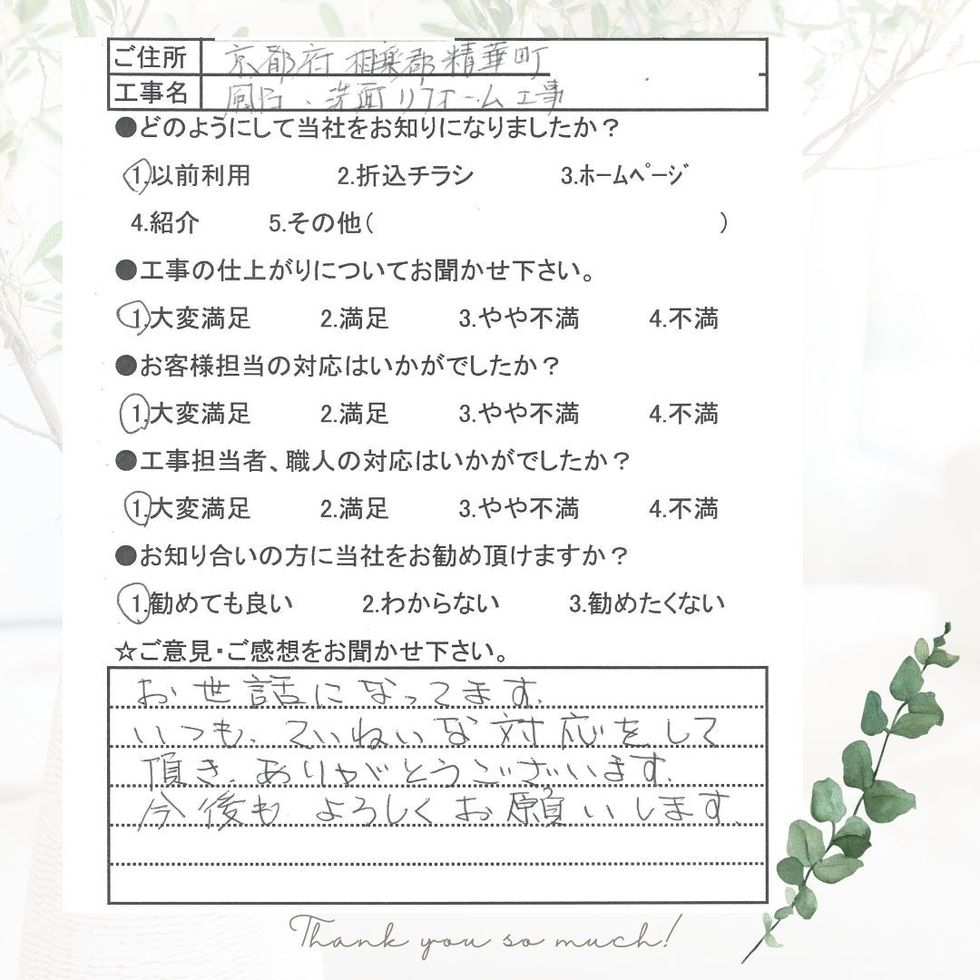 ご住所 京都府相楽郡精華町
工事名 風呂、洗面リフォーム工事
●どのようにして当社をお知りになりましたか？
1.以前利用 2.折込チラシ 3.ﾎｰﾑﾍﾟｰｼﾞ
4.紹介 5.その他( )
●工事の仕上がりについてお聞かせ下さい。
1.大変満足 2.満足 3.やや不満 4.不満
●お客様担当の対応はいかがでしたか？
1.大変満足 2.満足 3.やや不満 4.不満
●工事担当者、職人の対応はいかがでしたか？
1.大変満足 2.満足 3.やや不満 4.不満
●お知り合いの方に当社をお勧め頂けますか？
1.勧めても良い 2.わからない 3.勧めたくない
☆ご意見・ご感想をお聞かせ下さい。
お世話になってます。
いつも、ていねいな対応をして
頂き、ありがとうございます。
今後もよろしくお願いします。
Thank you so much!